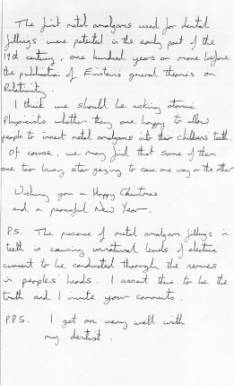 The first metal amalgams used for dental
fillings were patented in the early part of the
19th century, one hundred years or more before
the publication of Einsteins general theories on
Relativity.
I think we should be asking atomic
Physicists whether they are happy to allow
people to insert metal amalgams into their childrens teeth.
Of course, we may find that some of them
are too busy star gazing to care one way or the other
Wishing you a Happy Christmas
and a peaceful New Year.
P.S. The presence of metal amalgam fillings in
teeth is causing unnatural levels of electric
current to be conducted through the nerves
in peoples heads. I assert this to be the
truth and I invite your comments.
P.P.S. I get on very well with
my dentist.